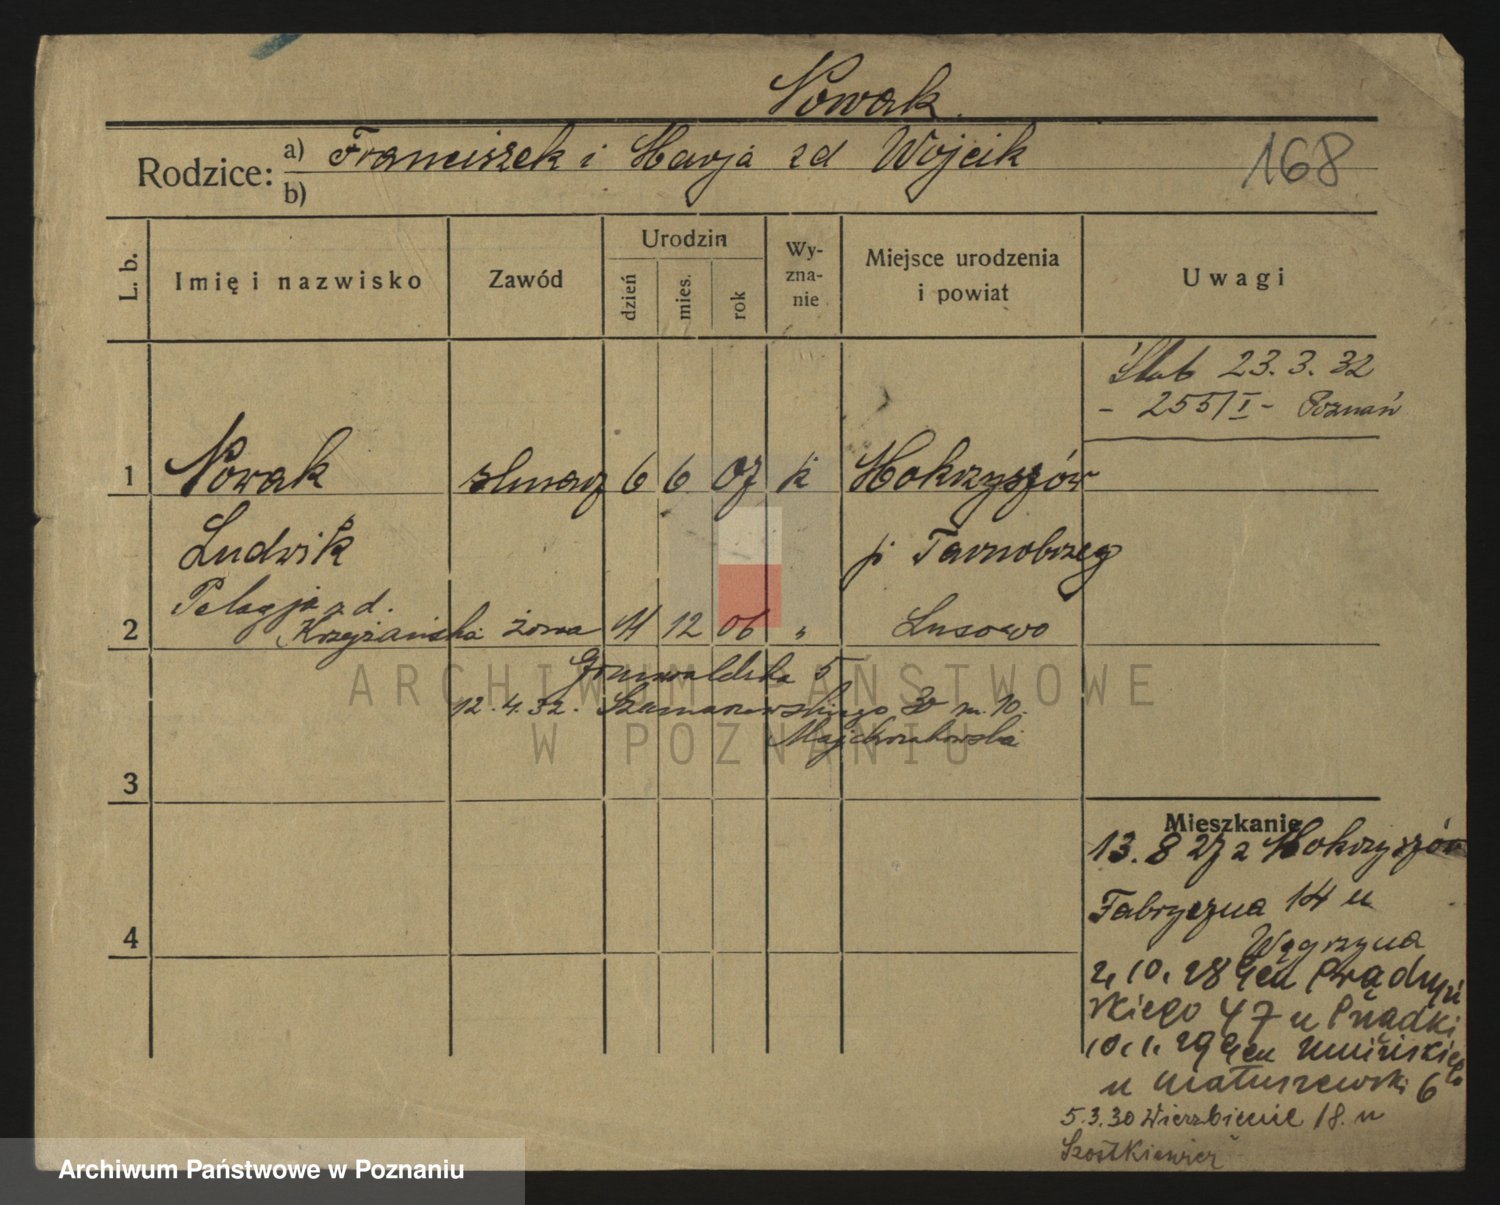 Nowak
168
Rodzice: a) Franciszek i Marja zd Wojcik
b)
L. b.
Imię i nazwisko
Zawód
Urodzin
dzień
mies.
rok
Wy-
zna-
nie
Miejsce urodzenia
i powiat
Uwagi
Ślub 23. 3. 32
- 255/I - Poznań
1 Nowak ślusarz 6 6 07 k Mokrzyszów
Ludwik p. Tarnobrzeg
Pelagja z d.
2 Krzyżańska żona 11 12 06 " Lusowo
Grunwaldzka 5
12. 4. 32. Szamarzewskiego 30 m. 10.
Majchrzakowska
3
Mieszkanie
13. 8 27 z Mokrzyszów
Fabryczna 14 u
4
Węgrzyna
2. 10. 28 Gen Prądzyń
skiego 47 u Prządki
10. 1. 29 Gen Umińskiego
u Matuszewski 6
5. 3. 30 Wierzbięcice 18. u
Szostkiewicz
ARCHIWUM PAŃSTWOWE
W POZNANIU
Archiwum Państwowe w Poznaniu